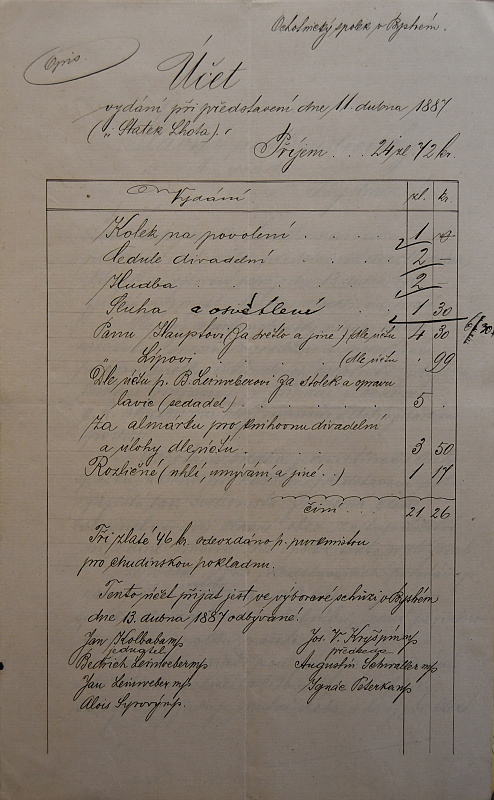 Ochotnický spolek v Bystrém.
Opis.
Účet
vydání při představení dne 11. dubna 1887
("Statek Lhota).
Příjem . . . 24 zl 72 kr.
Vydání zl. kr.
Kolek na povolení . . . . 1 –
Cedule divadelní . . . . 2 –
Hudba . . . . 2 –
Sluha a osvětlení . . . 1 30
Panu Hauptovi (za světlo a jiné) (dle účtu 4 30
„ Lípovi . . . (dle účtu . 99
Dle účtu p. B. Leinweberovi za stolek a opravu
lavic (sedadel) . . . . 5 .
Za almárku pro knihovnu divadelní
a úlohy dle účtu . . . . 3 50
Rozličné (uhlí, umývání, a jiné . .) 1 17
činí . . . 21 26
Tři zlaté 46 kr. odevzdáno p. purkmistru
pro chudinskou pokladnu.
Tento účet přijat jest ve výborové schůzi v Bystrém
dne 13. dubna 1887 odbývané.
Jan Kolbaba mp Jos. V. Kryšpín mp
jednatel předseda
Bedřich Leinweber mp Augustin Schwaller mp
Jan Leinweber mp Ignác Peterka mp
Alois Syrový mp.